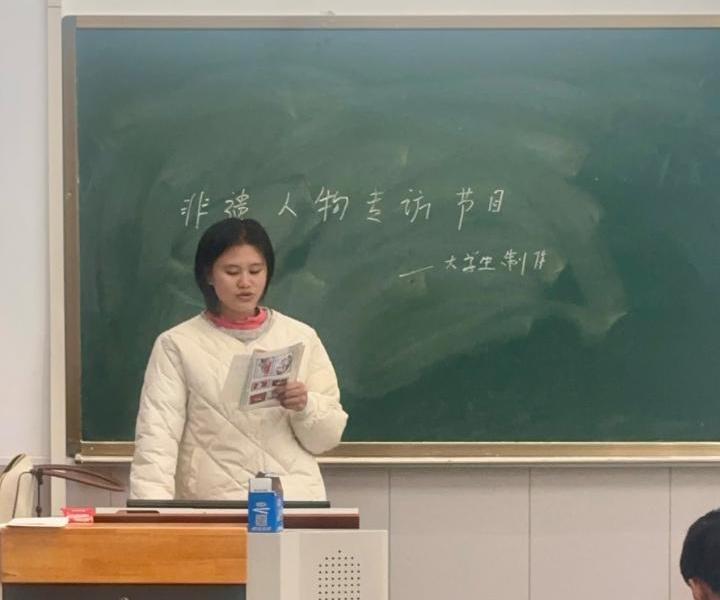 非遗人物专访节目
——大学生制作